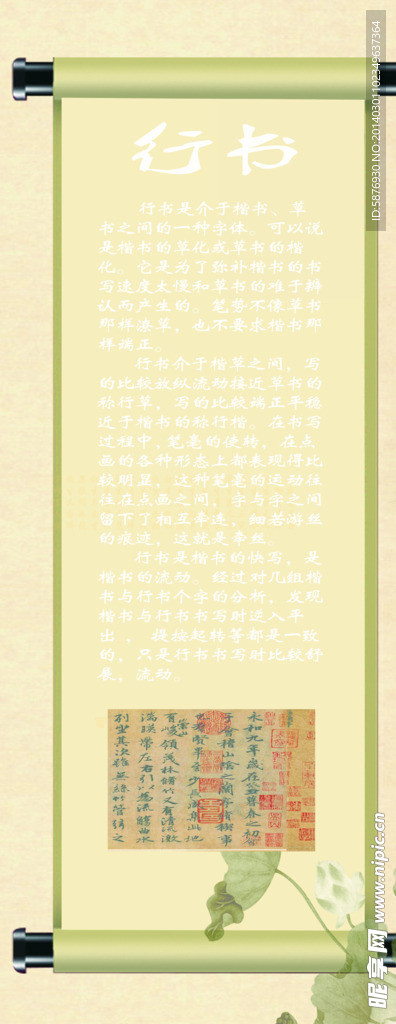 行书
行书是介于楷书、草
书之间的一种字体。可以说
是楷书的草化或草书的楷
化。它是为了弥补楷书的书
写速度太慢和草书的难于辨
认而产生的。笔势不像草书
那样潦草，也不要求楷书那
样端正。
行书介于楷草之间，写
的比较放纵流动接近草书的
称行草，写的比较端正平稳
近于楷书的称行楷。在书写
过程中，笔毫的使转，在点
画的各种形态上都表现得比
较明显，这种笔毫的运动往
往在点画之间，字与字之间
留下了相互牵连，细若游丝
的痕迹，这就是牵丝。
行书是楷书的快写，是
楷书的流动。经过对几组楷
书与行书个字的分析，发现
楷书与行书书写时逆入平
出，提按起转等都是一致
的，只是行书书写时比较舒
展，流动。
永和九年歲在癸丑暮春之初
于會稽山陰之蘭亭脩稧事
也羣賢畢至少長咸集此地
有峻領茂林脩竹又有清流激
湍暎帶左右引以為流觴曲水
列坐其次雖無絲竹管弦之
ID:5876930 NO:20140301102349637364
昵享网 www.nipic.cn